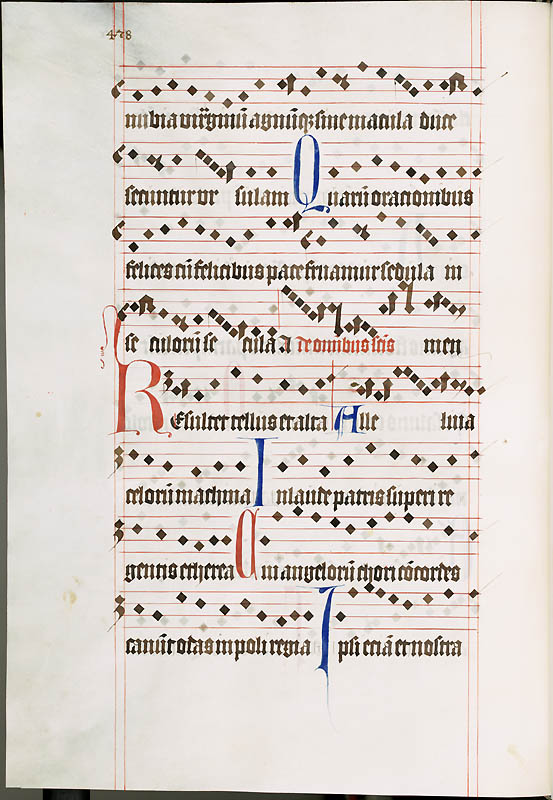 478
nubia virginū agnūqꝫ sine macula duce
secuntur vr sulam Quarū orationibus
felices cū felicibus pace fruamur sedula in
se culorū se cula A De omnibus scīs men
Resultet tellus et alta Alle luia
celorū machina In laude patris superi re
gentis etherea Cui angelorū chori cōcordes
canūt odas in poli regia Ipsi etiā et nostra